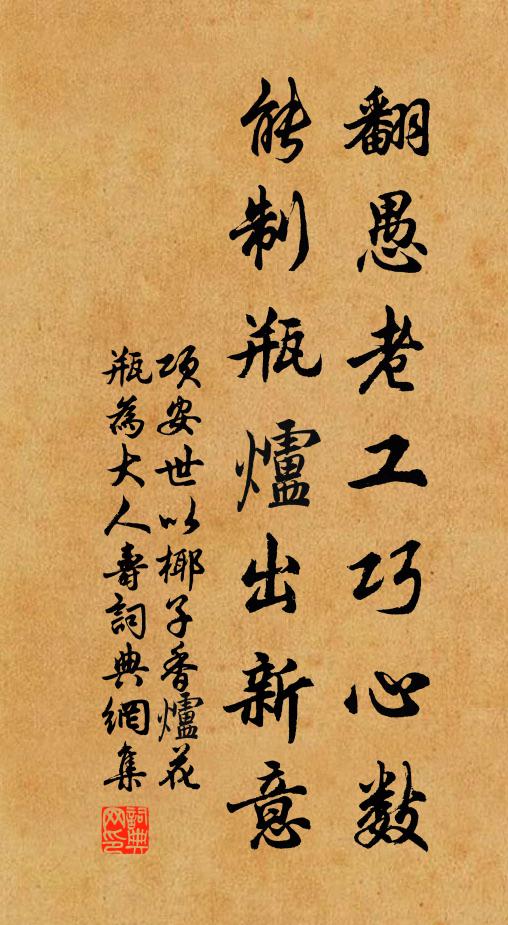 翻愚老工巧心数
能制瓶爐出新意
项安世以椰子香爐花
瓶為大人寿詞典網集
詞典
网印